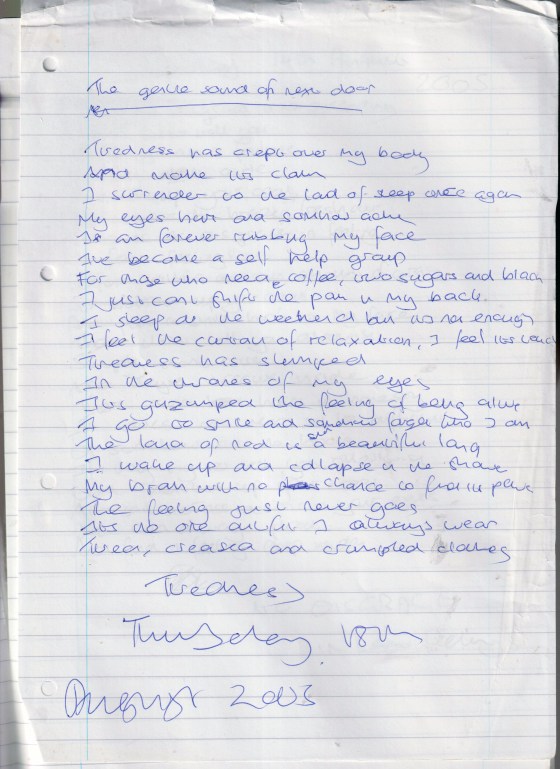 The gentle sound of next door
Tiredness has crept over my body
And made its claim
I surrender to the lad of sleep once again
My eyes hurt and somhow ache
I am forever rubbing my face
I've become a self help group
For those who need coffee, two sugars and black
I just can't shift the pain in my back.
I sleep at the weekend but its not enough
I feel the curtain of relaxation, I feel its touch
Tiredness has slumped
In the whites of my eyes
Its gazumped the feeling of being alive
I go to smile and somehow forget who I am
The land of nod is such a beautiful land
I wake up and collapse in the
My brain with no chance to find its pace
The feeling just never goes
Its the one outfit I always wear
Tired, creased and crumpled clothes
Tiredness
Thursday
August 2003